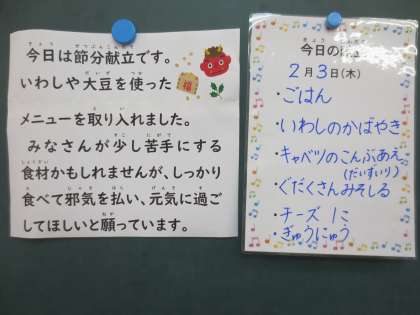 今日は節分献立です。
いわしや大豆を使った
福
メニューを取り入れました。
みなさんが少し苦手にする
食材かもしれませんが、しっかり
食べて邪気を払い、元気に過ご
してほしいと願っています。
今日の
2月3日(木)
・ごはん
・いわしのかばやき
・キャベツのこんぶあえ
(だいずいり)
・ぐだくさんみそしる
・チーズ 1こ
・ぎゅうにゅう